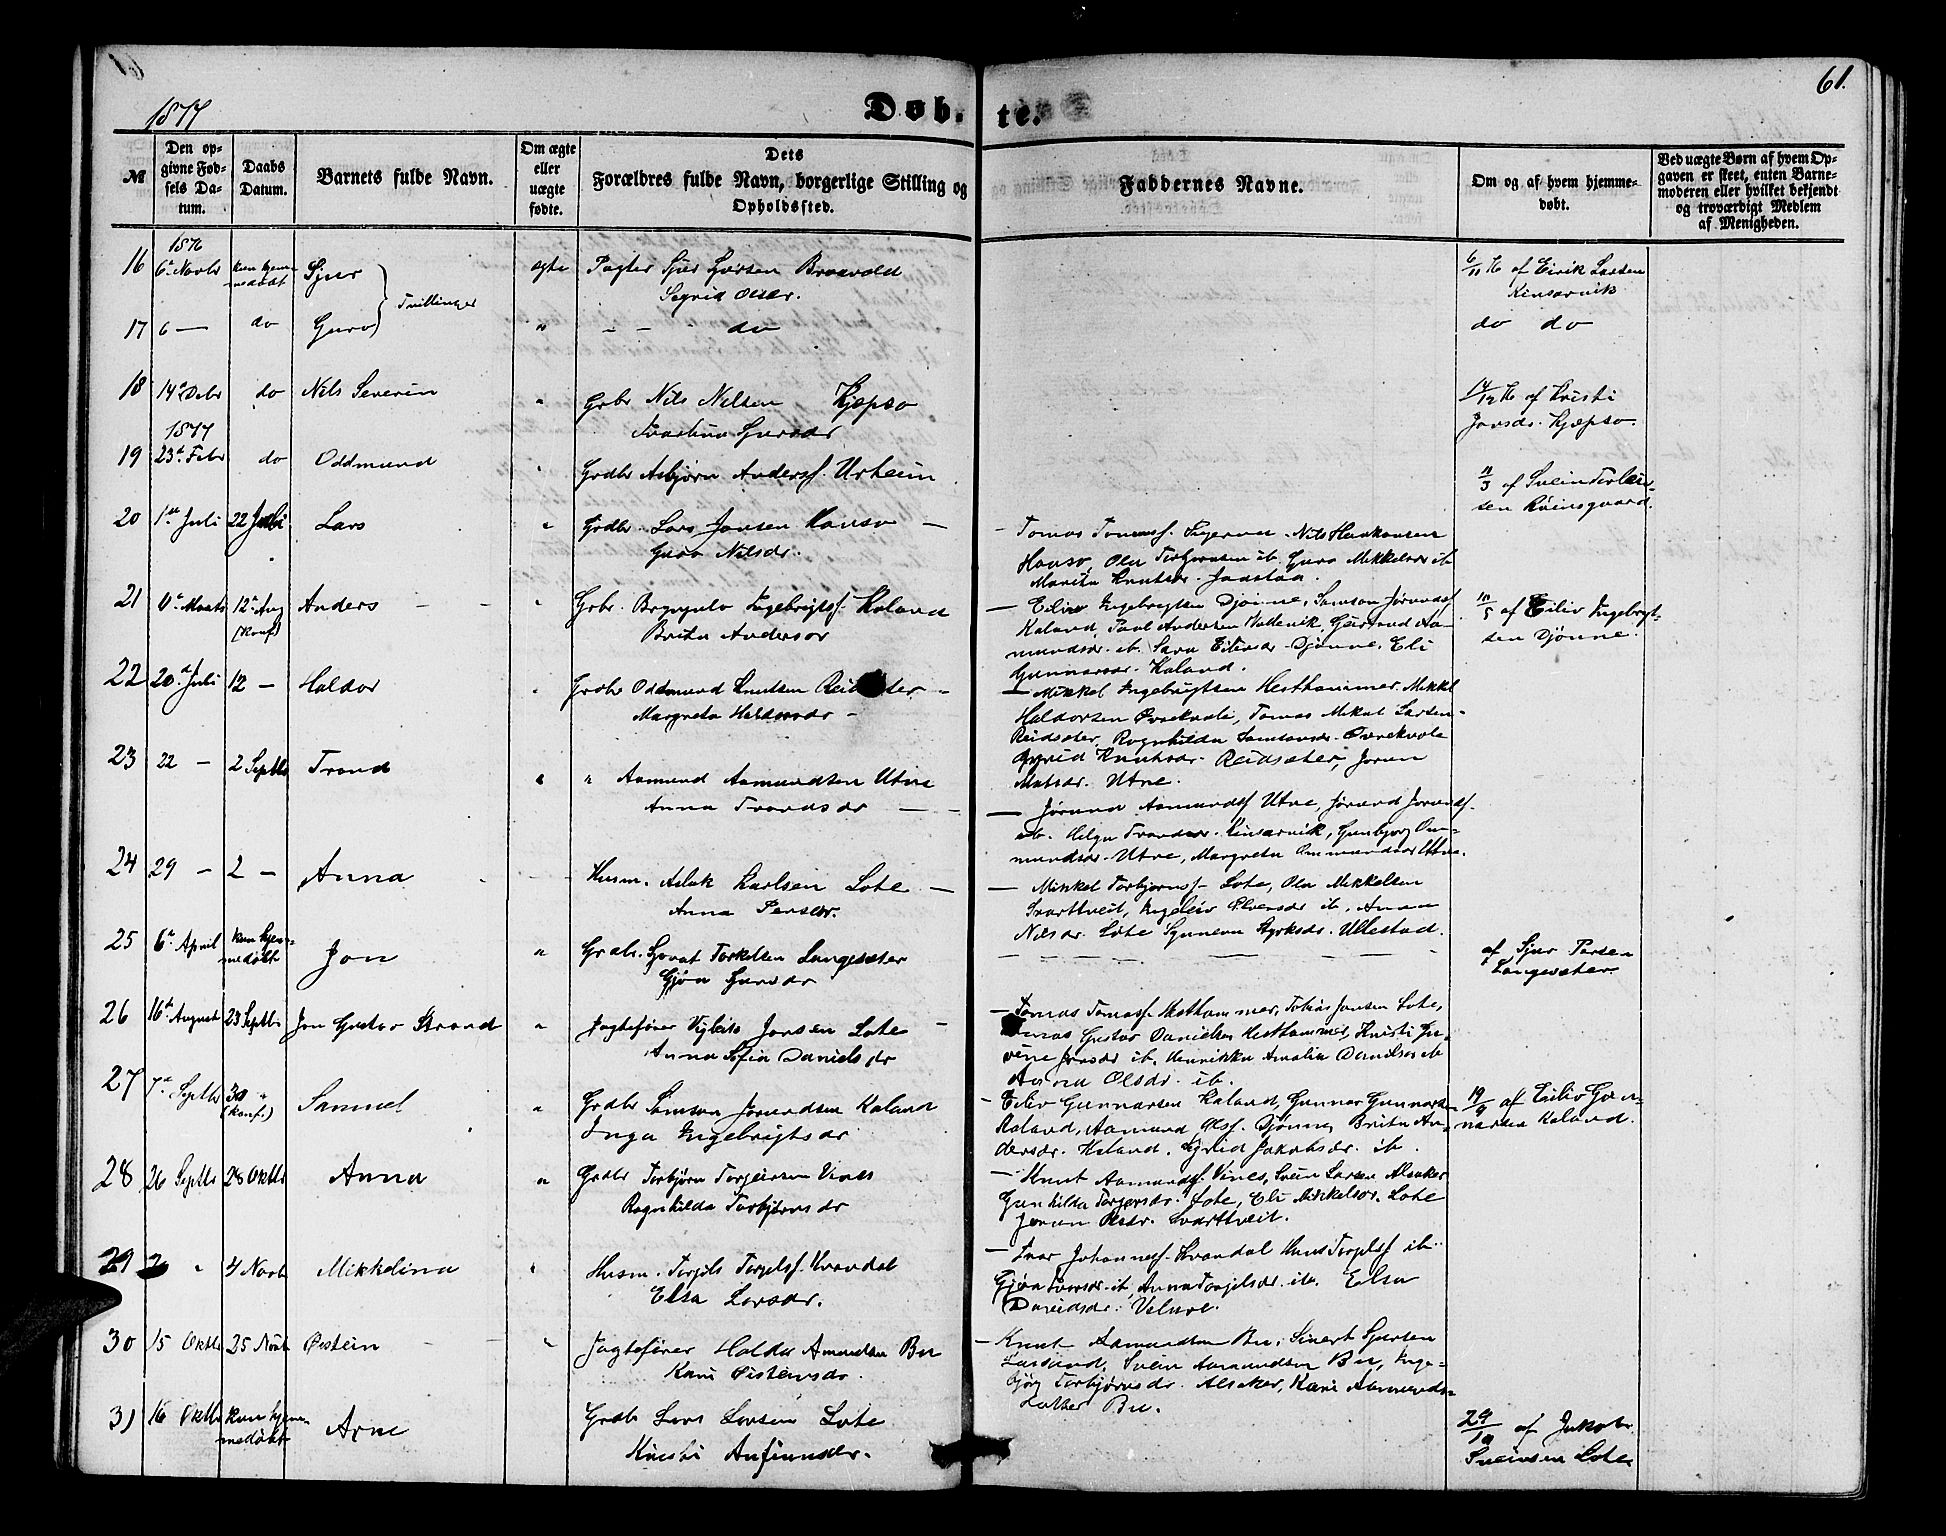 61.
1877
Døb-te.
№
Den op-
givne Fød-
sels Da-
tum.
Daabs
Datum.
Barnets fulde Navn.
Om ægte
eller
uægte
fødte.
Dets
Forældres fulde Navn, borgerlige Stilling og
Opholdssted.
Faddernes Navne.
Om og af hvem hjemme-
døbt.
Ved uægte Børn af hvem Op-
gaven er skeet, enten Barne-
moderen eller hvilket bekjendt
og troværdigt Medlem
af Menigheden.
1876
16 6te Novbr kun hjem-
medøbt Sjur ægte Sjur Braavold
Sigrid Olsdr.
6/11 76 af Eirik Larsen
Kinsarvik
Tvillinger
17 6 — do Guro " - - do
do do
18 14de Debr do Nils Severin " Grbr Nils Nelsen Kjepso
14/12 76 af Kristi
Jonsdr. Kjepso.
1877
19 23de Febr do Oddmund " Grdbr Asbjørn Anderss. Urheim
11/3 af Svein
20 1ste Juli 22 Juli Lars " Grdbr. Lars Jonsen Hanso —
Guro Nilsdr.
— Tomas Nils Haakonsen
Hanso, Ola ib. Guro Mikkelsdr ib
Marita Knutsdr. Jaastaa.
21 12te Aug Anders - - " Grbr. Brynjulv Ingebrigts. Haland
(konf.) Brita Andersdr
— Eiliv Ingebrigtsen Djønne, Samson
Haland, Paul Andersen
mundsdr. ib. Sara Eilivsdr. Djønne, Eli
Gunnarsdr. Haland.
af Eiliv Ingebrigt-
sen Djønne.
22 20de Juli 12 — Haldor " Grdbr Oddmund Knutsen
Margreta Haldorsdr —
— Mikkel Ingebrigtsen Hesthammer, Mikkel
Haldorsen Øvrekvale, Tomas Mikal Larsen
Reidsæter, Ragnhilda Samsonsdr. Øvrekvale
Sigrid Knutsdr. Reidsæter, Jorun
Matsdr. Utne.
23 22 — 2 Septbr Trond " " Aamund Aamundsen Utne
Anna Trondsdr — —
— Jørund Aamunds. Utne, Jørund Jørunds.
ib. Helga Trondsdr. Kinsarvik, Gunbjorg Om-
mundsdr. Utne, Margreta Ommundsdr Utne.
24 29 — 2 — Anna Husm. Aslak Karlsen Lote —
Anna Persdr.
— Mikkel Torbjørns. Lote, Ola Mikkelsen
Svarttveit, ib. Anna
Nilsdr. Lote Synneva Styrksdr. Ullestad.
25 6te April kun hjem-
medøbt Jon " Grdbr. Torkelsen Langesæter
Gjøa Sjursdr
af Sjur Persen
Langesæter.
26 16de August 23 Septbr Jon Gustav Strand " Jagtefører Vigleik Jonsen Lote —
Anna Sofia Daniels dr
— Tomas Tomass. Hesthammer, Tobias Jonsen Lote,
Gustav Danielsen Hesthammer, Kristi
Jonsdr ib, Henrikka Amalia Danielsdr ib
Anna Olsdr. ib.
27 7de Septbr 30 "
(konf.) Samuel " Grdbr Samson Jørundsen Haland
Inga Ingebrigtsdr
— Eiliv Gunnarsen Haland, Gunnar Gunnarsen
Haland, Aamund Olss. Djønne, Brita An-
dersdr. Haland, Sigrid Jakobsdr. ib.
19/9 af Eiliv Gun-
narsen Haland.
28 26 Septbr 28 Oktbr Anna " Grdbr Torbjørn Torgeirsen Vines
Ragnhilda Torbjørnsdr
— Knut Aamunds. Vines, Svein Larsen Alsaker
Gunhilda Torgersdr. Lote, Eli Mikkelsdr. Lote
Jorun Olsdr. Svarttveit.
29 " 4 Novbr Mikkelina " Husm. Torgils Torgilss. Kvandal
Elsa Larsdr.
— Ivar Johanness. Kvandal Torgilss ib
Gjøa Ivarsdr. ib, Anna Torgilsdr. ib. Elsa
Davidsdr.
30 15 Oktbr 25 Novbr Øistein — " Jagtefører Haldor Amundsen Bu
Kari Øisteinsdr.
— Knut Aamundsen Bu, Sivert Sjursen
Svein Aamundsen Bu, Inge-
bjørg Torbjørnsdr. Alsaker, Kari Aamunds-
datter Bu.
31 16 Oktbr kun hjem-
medøbt Arne Grdbr Lars Larsen Lote
Kristi Anfinnsdr.
24/10 af Jakob
Sveinsen Lote